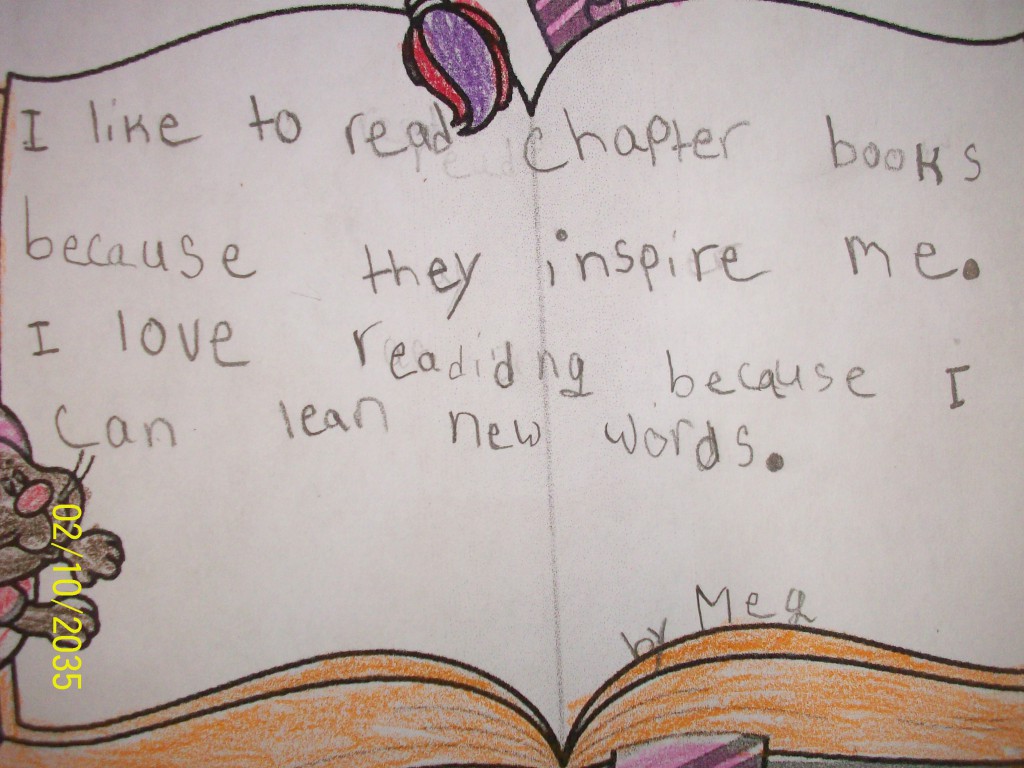 I like to read chapter books
because they inspire me.
I love readidng because I
can lean new words.
by Meg
02/10/2035